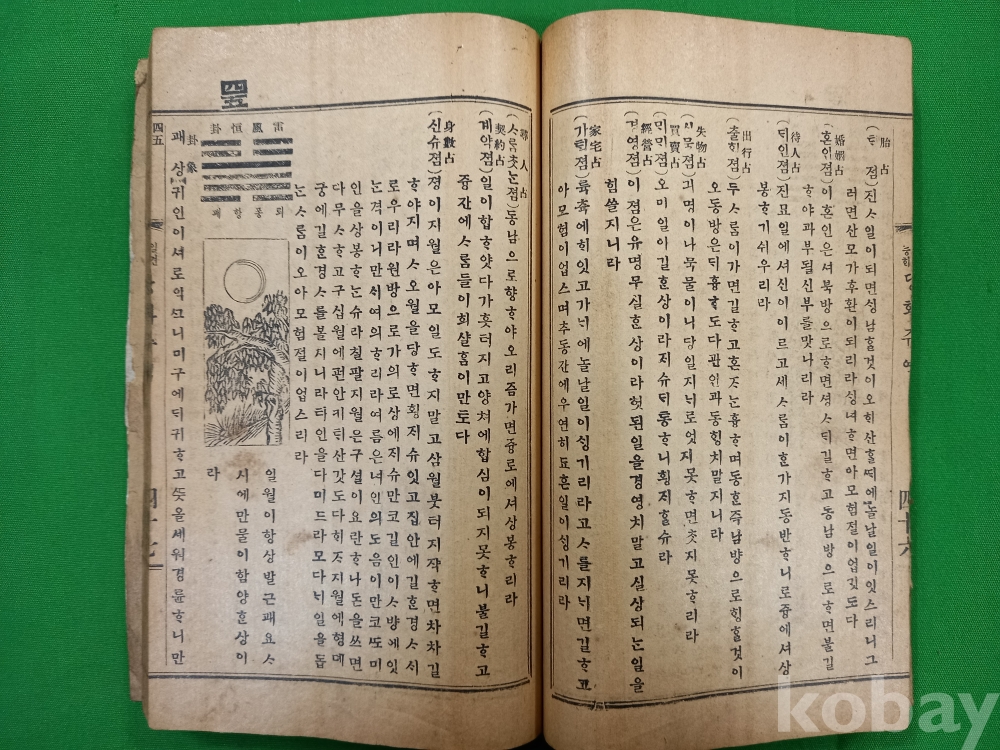 胎占
(틱 졈)진ᄉ일이되면싱남ᄒᆞᆯ것이오ᄒᆡ산ᄒᆞᆯᄯᅢ에놀날일이잇스리니그
러면산모가후환이되리라싱녀ᄒᆞ면아모험졀이업깃도다
婚姻占
(혼인졈)이혼인은셔북방으로ᄒᆞ면셩ᄉ되길ᄒᆞ고동남방으로ᄒᆞ면불길
ᄒᆞ야과부될신부를맛나리라
待人占
(ᄃᆡ인졈)진묘일에셔신이이르고세ᄉ롬이ᄒᆞᆫ가지동반ᄒᆞ니로즁에셔상
봉ᄒᆞ기쉬우리라
出行占
(츌ᄒᆡᆼ졈)두ᄉ롬이가면길ᄒᆞ고혼ᄌ는흉ᄒᆞ며동ᄒᆞᆫ즉남방으로ᄒᆡᆼᄒᆞᆯ것이
오동방은ᄃᆡ흉ᄒᆞ도다관인과동ᄒᆡᆼ치말지니라
失物占
긔명이나묵물이니당일지ᄂᆡ로엇지못ᄒᆞ면ᄎᆞᆺ지못ᄒᆞ리라
買賣占
(ᄆᆡᄆᆡ졈)오미일이길ᄒᆞᆫ상이라
經營占
(경영졈)이졈은유명무실ᄒᆞᆫ상이라헛된일을경영치말고실상되는일을
힘쓸지니라
家宅占
(가ᄐᆡᆨ졈)륙츅에ᄒᆡ잇고가ᄂᆡ에놀날일이싱기리라고ᄉ를지ᄂᆡ면길ᄒᆞ고
아모험이업스며추동간에우연히됴흔일이싱기리라
四十六
尋人占
(ᄉ롬ᄎᆞᆺ눈졈)동남으로향ᄒᆞ야오리즘가면즁로에셔상봉ᄒᆞ리라
契約占
(계약졈)일이합ᄒᆞ얏다가흣터지고양쳐에합심이되지못ᄒᆞ니불길ᄒᆞ고
즁간에ᄉ롬들이희살홈이만토다
身數占
(신슈졈)졍이지월은아모일도ᄒᆞ지말고삼월붓터지작ᄒᆞ면차차길
ᄒᆞ야지며ᄉ오월을당ᄒᆞ면횡지슈잇고집안에길ᄒᆞᆫ경ᄉ서
로우리라원방으로가의로상에지슈만코길인이ᄉ방에잇
눈격이니만ᄉ여의ᄒᆞ리라여름은녀인의도음이만코ᄯᅩ미
인을상봉ᄒᆞ눈슈라칠팔지월은구셜이요란ᄒᆞ나돈을쓰면
다무ᄉᄒᆞ고구십월에편안키틱산갓도다
궁에길ᄒᆞᆫ경ᄉ를볼지니라타인을다미드라모다ᄂᆡ일을돕
눈ᄉ롬이오아모험졀이업스리라
四五
雷風恒卦
뢰풍항괘
일월이항상발근괘요ᄉ
시에만물이함양ᄒᆞᆫ상이
라
卦象
괘상
귀인이셔로역ᄉᄒᆞ니미구에ᄃᆡ귀ᄒᆞ고ᄯᅳᆺ을세워경륜ᄒᆞ니만
四五
四十七
kobay